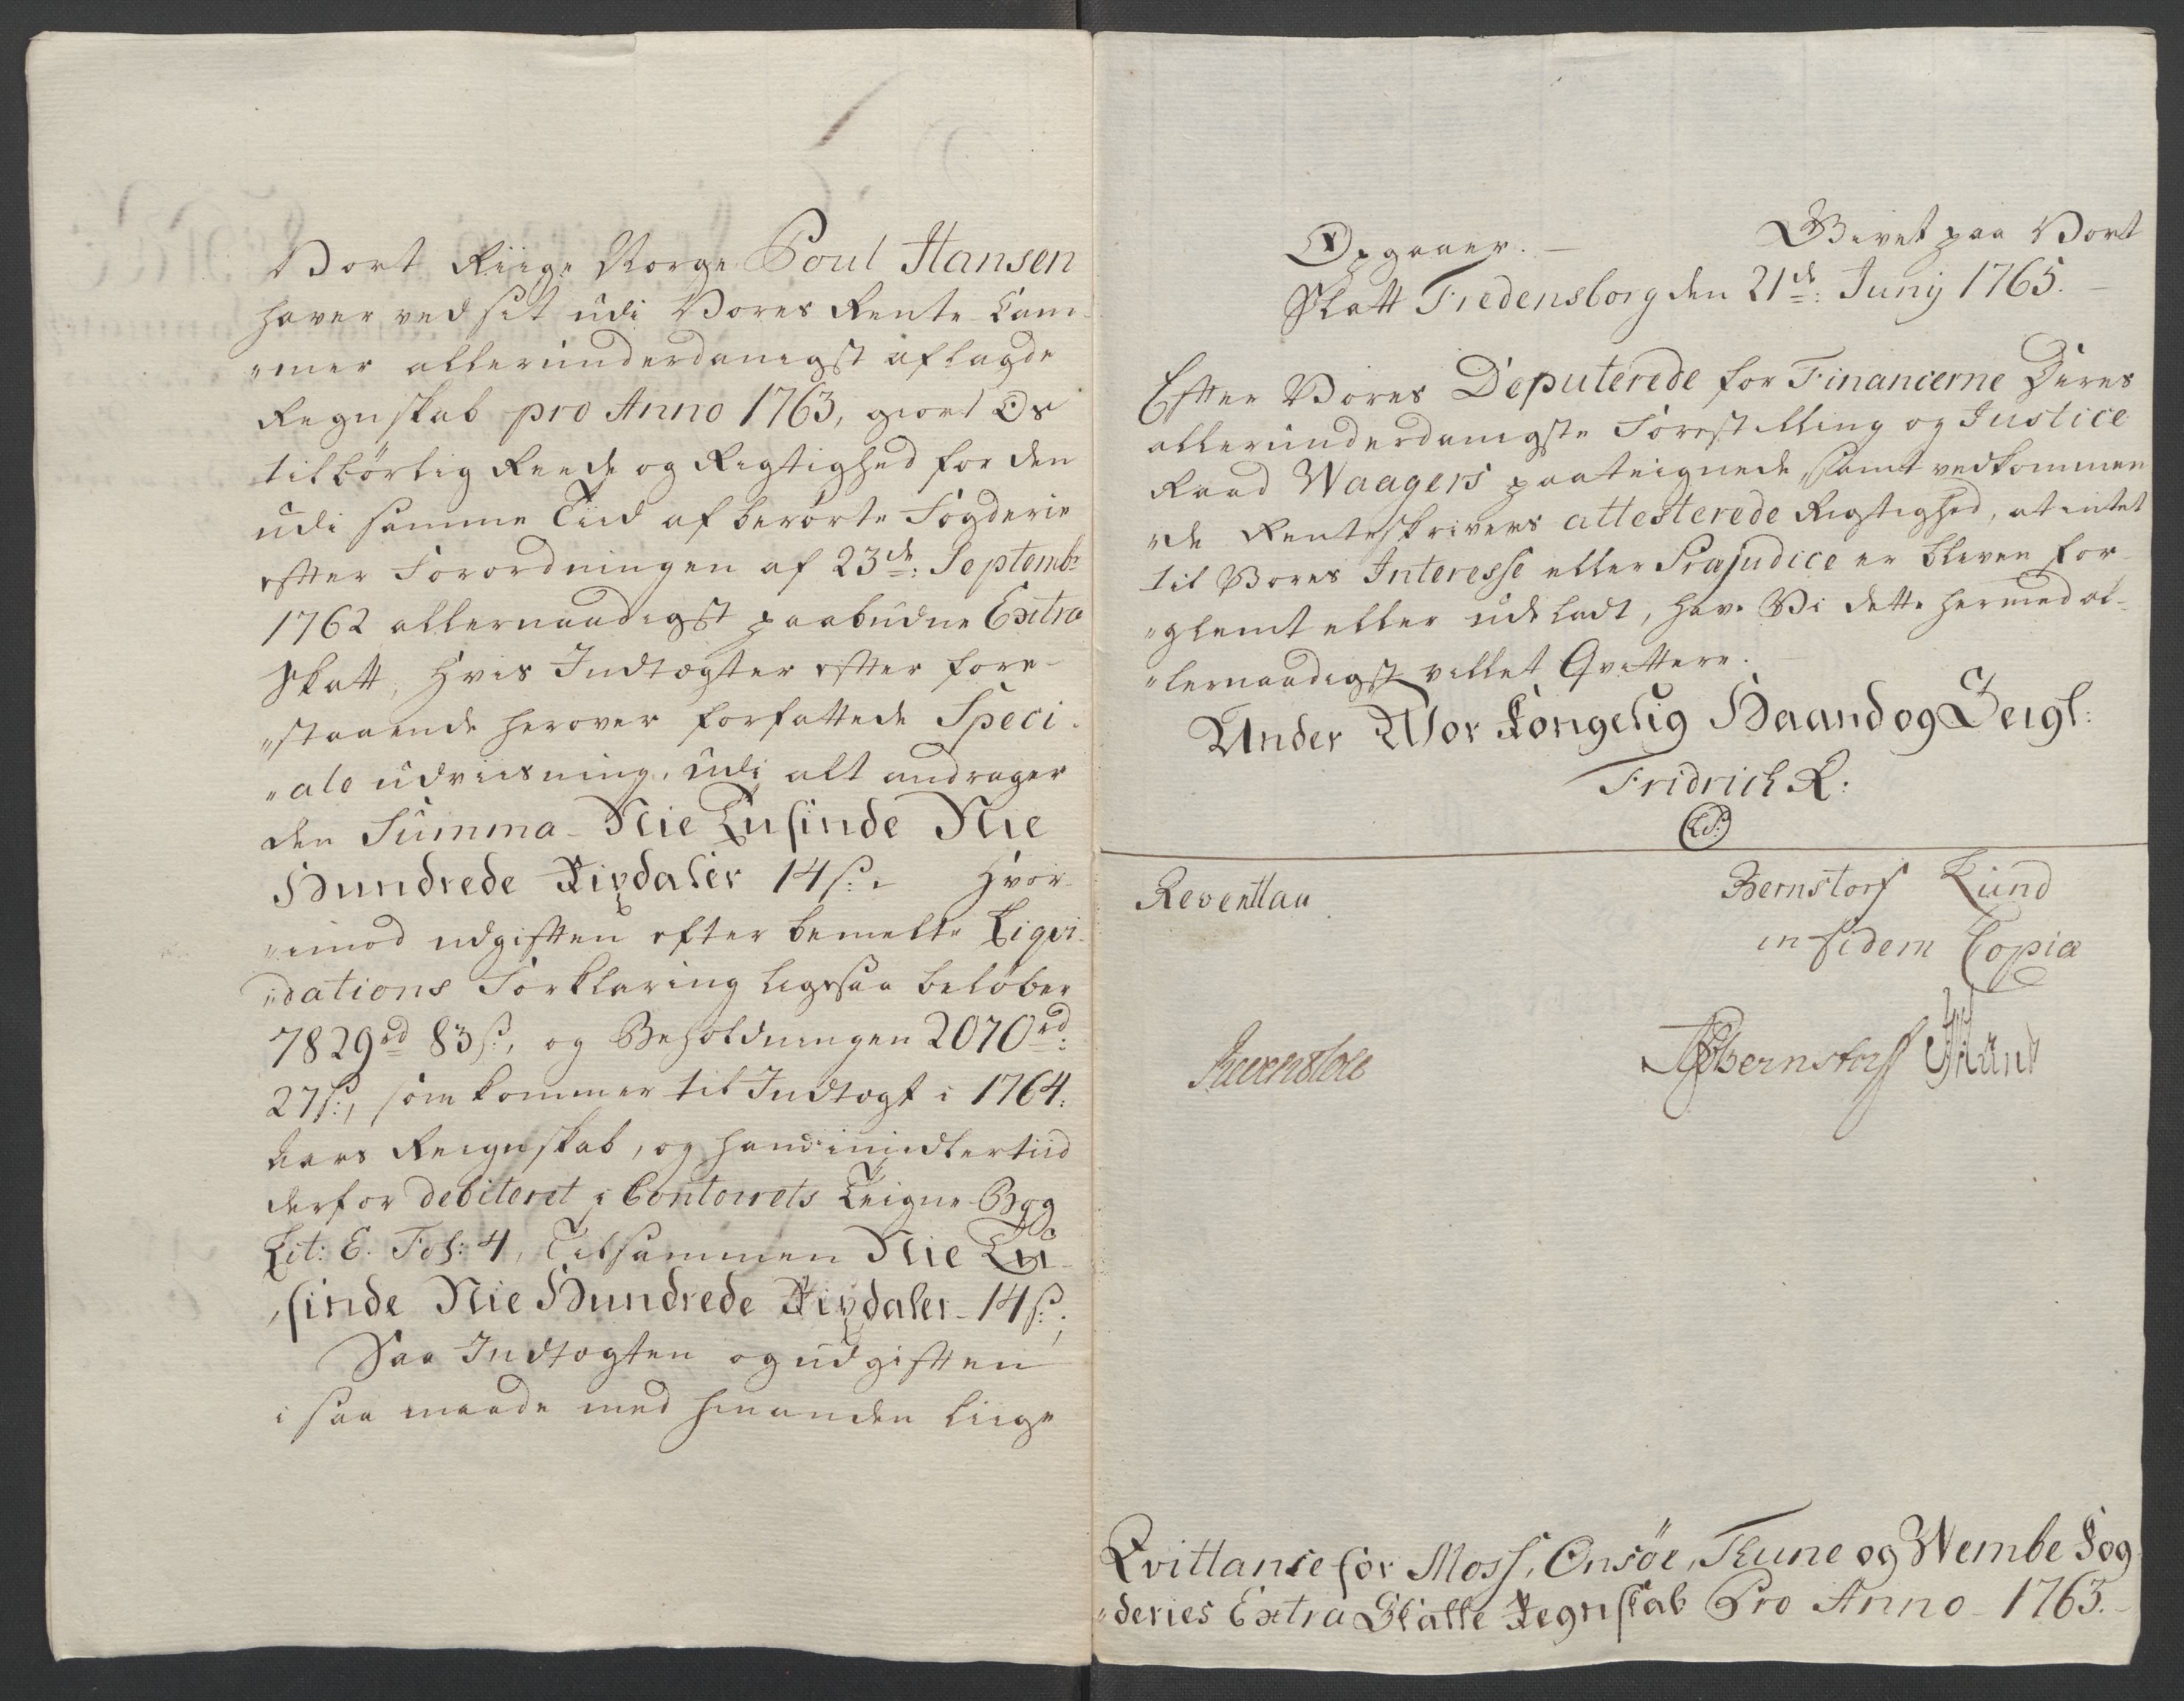 Vort Riige Norge Poul Hansen
haver ved sit udi Vores Rente-Cam-
"mer allerunderdanigst aflagde
Regnskab pro Anno 1763, giort Os
tilbörlig Reede og Rigtighed for den
udi samme Tiid af berörte Fogderie
efter Forordningen af 23de: Septembr
1762 allernaadigst paabudne Extra
Skatt, Hvis Indtægter efter fore-
"staaende herover forfattede Speci-
"ale udviisning, udi alt andrager
den Summa Nie Tusinde Nie
Hundrede Rixdaler 14 s:, Hvor-
"imod udgiften efter bemelte Liqvi-
"dations Forklaring ligesaa belöber
7829rd 83 s:, og Beholdningen 2070rd:
27 s:, som kommer til Indtægt i 1764.
Aars Reignskab, og hand imidlertiid
derfor debiteret i Contoirets Teigne-Bog
Lit: E. Fol: 4, Tilsammen Nie Tu-
"sinde Nie Hundrede Rixdaler 14 s:;
Saa Indtægten og udgiften
i saa maade med hinanden liige
Opgaaer. — Givet paa Vort
Slott Fredensborg den 21de: Junij 1765.
Efter Vores Deputerede for Financerne Deres
allerunderdanigste Forestilling og Justice
Raad Waagers paateignede, samt vedkommen
"de Renteskrivers attesterede Rigtighed, at intet
til Vores Interesse eller Præjudice er bleven for-
"glemt eller udeladt, have Vi dette hermed al-
"lernaadigst villet Qvittere.
Under Vor Kongelig Haand og Zeigl:
Fridrich R:
LS:
Reventlau Bernstorf Lund
in fidem Copia
Reventlow Bernstorff
Qvittanse for Moss, Onsöe, Thune og Wembe Fog
"deries Extra Skatte Regnskab Pro Anno 1763.